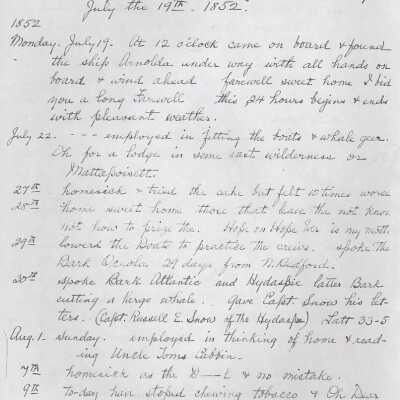 July the 19th. 1852.
1852
Monday. July 19. At 12 o'clock came on board & found
the ship Arnolda under way with all hands on
board & wind ahead farewell sweet home I bid
you a long farewell this 24 hours begins & ends
with pleasant weather.
July 22. - - - employed in fitting the boats & whale gear.
Oh for a lodge in some vast wilderness or
Mattapoisett.
27th homesick & tried the cake but felt 10 times worse
28th home sweet home those that have the not know
not how to prize the. Hope on Hope Ever is my motto
29th lowerd the boats to practice the crews. spoke the
Bark Osceola 29 days from N. Bedford.
30th spoke Bark Atlantic and Hydaspie latter Bark
cutting a large whale. Gave Capt Snow his let-
ters. (Capt. Russell E. Snow of the Hydaspe) Latt 33-5
Aug. 1- Sunday. employed in thinking of home & read-
ing Uncle Toms Cabbin.
7th homesick as the D--L & no mistake.
9th to-day have stoped chewing tobacco & Oh Dear